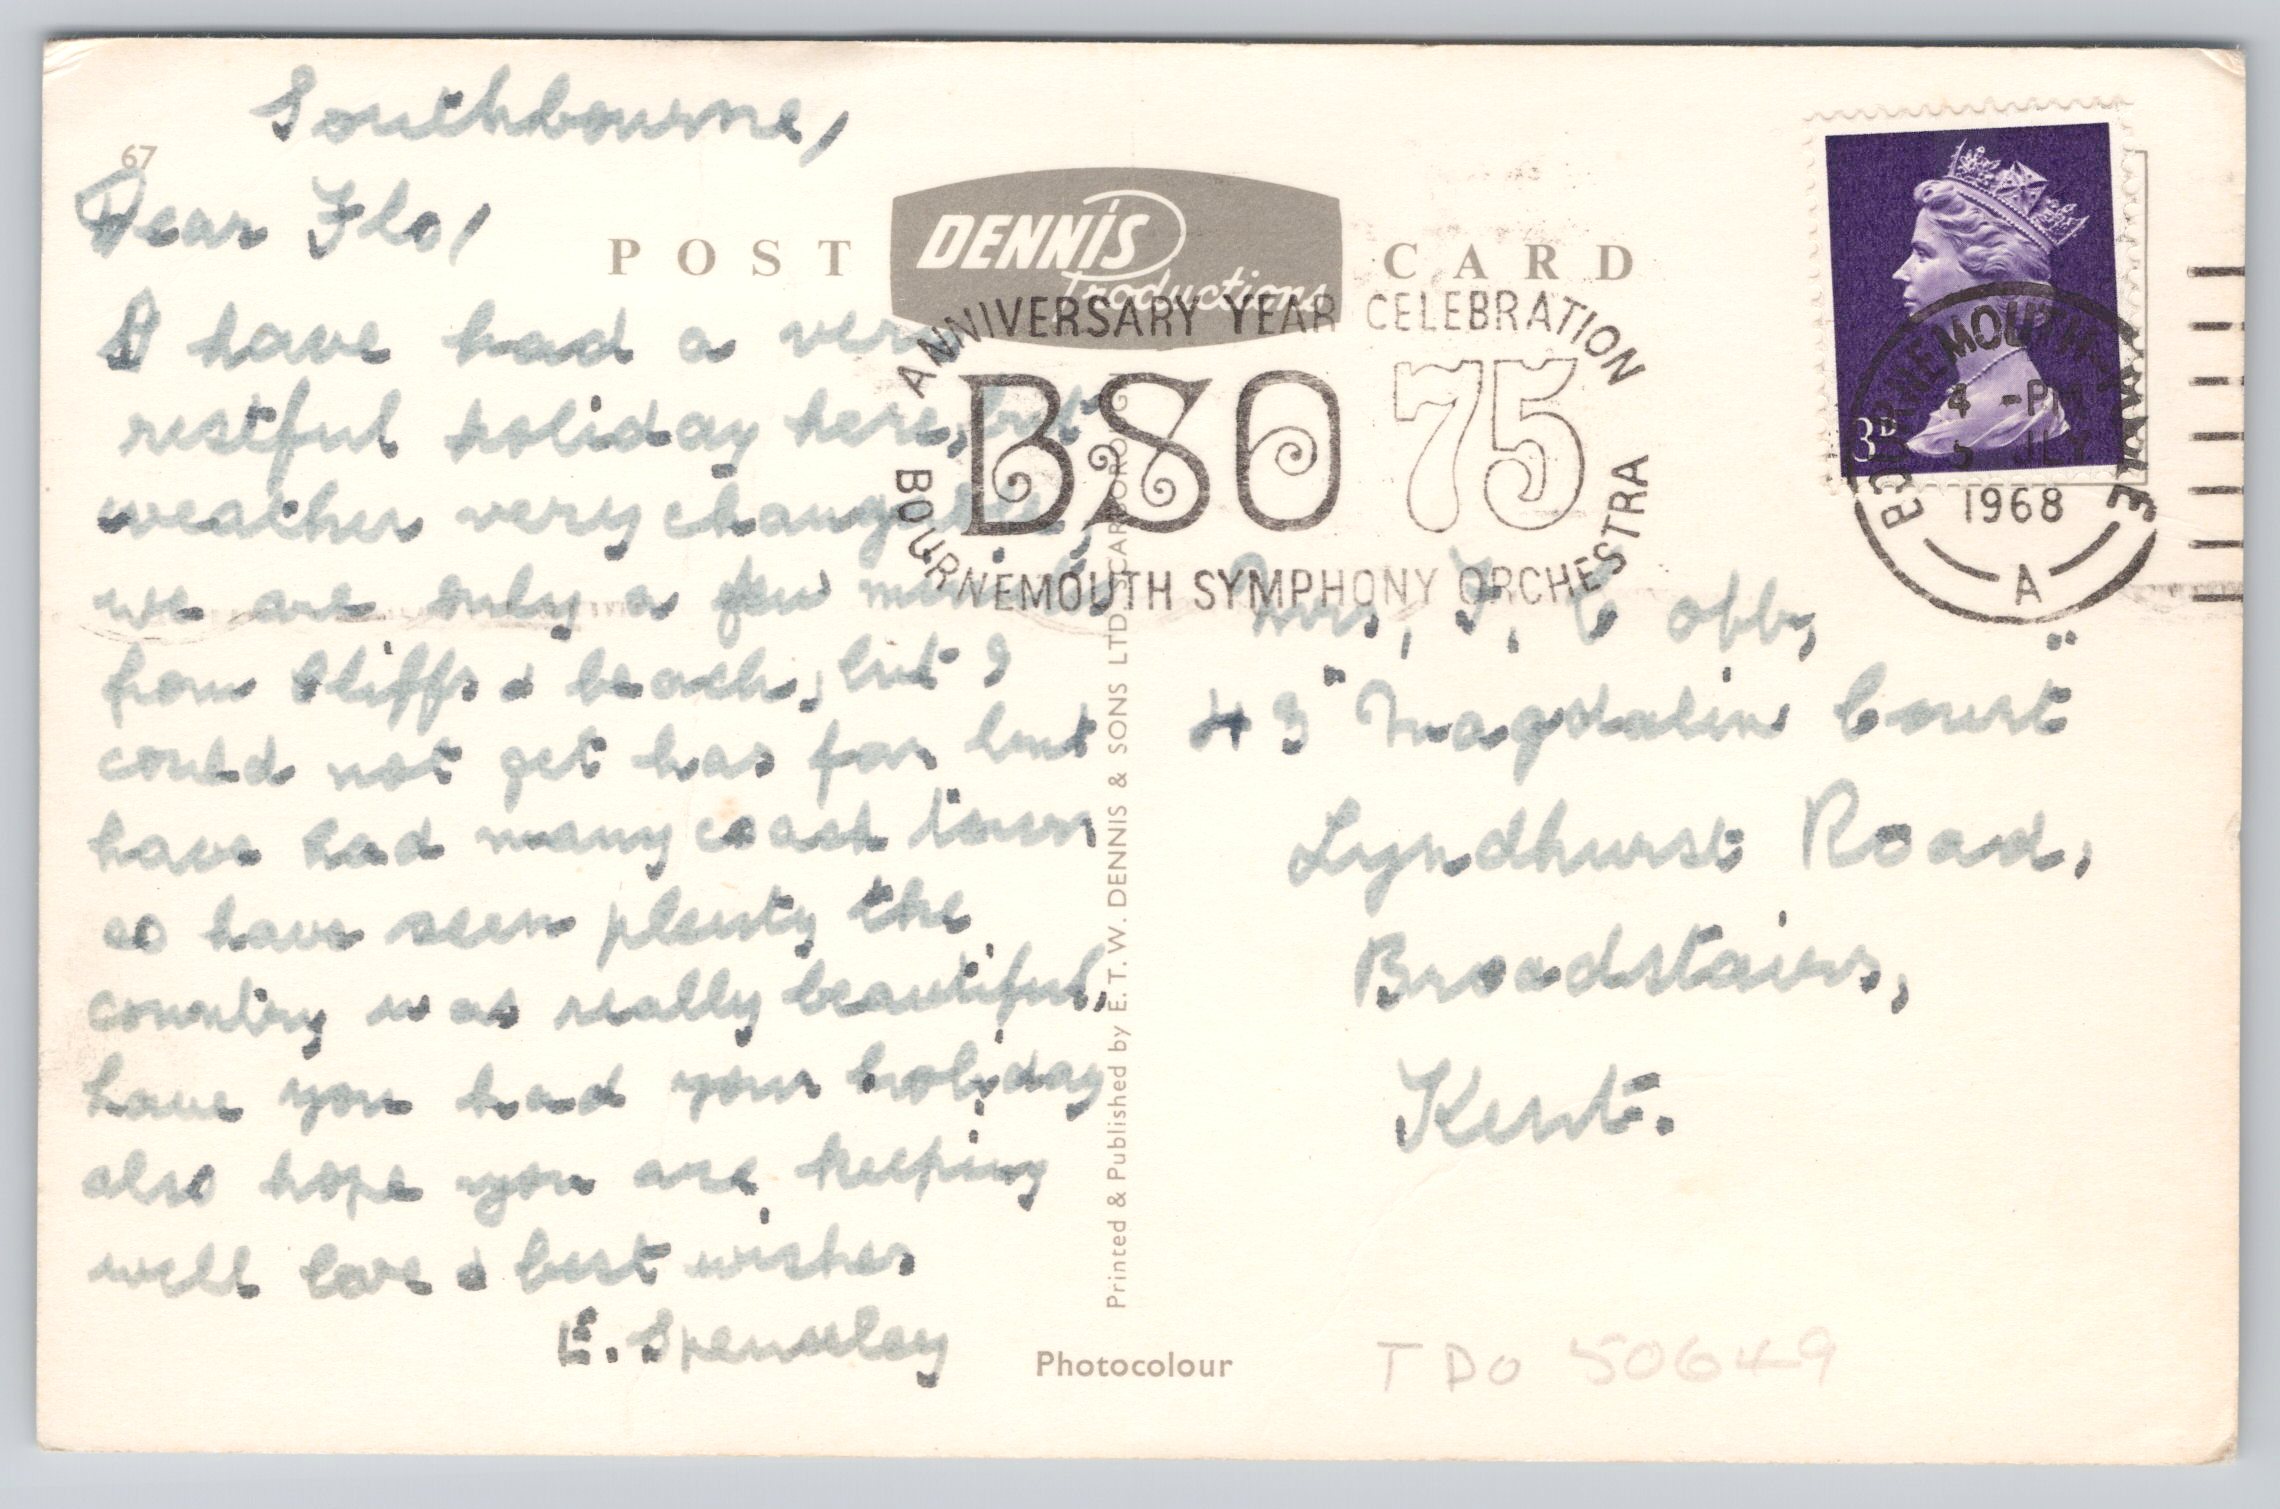 Southbourne,
67
Dear Flo,
I have had a very
restful holiday here, but
weather very changeable
we are only a few
from cliffs & beach, but I
could not get has far but
have had many coach tours
so have seen plenty the
country was really beautiful,
have you had your holiday
also hope you are keeping
well love & best wishes
E. Spenseley
POST CARD
DENNIS
Productions
ANNIVERSARY YEAR CELEBRATION
BSO 75
BOURNEMOUTH SYMPHONY ORCHESTRA
3D
BOURNEMOUTH-POOLE
4 -PM
5 JLY
1968
A
Mrs, F, Cobb,
43 "Magdalin Court"
Lyndhurst Road,
Broadstairs,
Kent.
Printed & Published by E. T. W. DENNIS & SONS LTD., SCARBOROUGH
Photocolour
TDO 50649